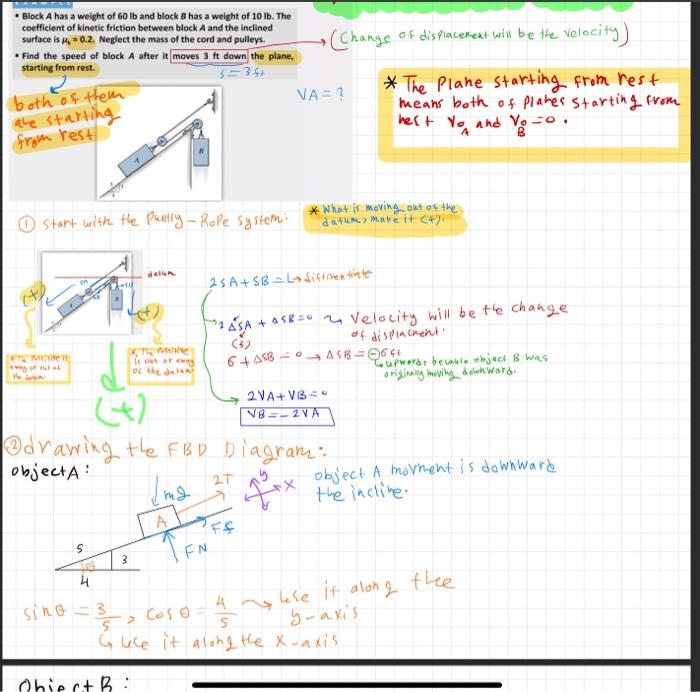 • Block A has a weight of 60 lb and block B has a weight of 10 lb. The
coefficient of kinetic friction between block A and the inclined
surface is μk = 0.2. Neglect the mass of the cord and pulleys.
• Find the speed of block A after it moves 3 ft down the plane,
starting from rest.
(Change of displacement will be the velocity)
S = 3 ft
VA = ?
both of them
are starting
from rest
* The Plane starting from rest
means both of planes starting from
rest VoA and VoB = 0.
A
B
① Start with the Puelly - Rope system:
* What is moving out of the
datum, make it (+).
datum
(+)
(+)
of the datum
(+)
2SA + SB = L → differentiate
2ΔSA + ΔSB = 0 → Velocity will be the change
of displacment.
(3)
6 + ΔSB = 0 → ΔSB = -6 ft
upwards because object B was
originally moving downward.
2VA + VB = 0
VB = -2VA
② drawing the FBD Diagram:
object A:
mg
2T
y
x
A
Ff
FN
5
3
4
object A movment is downward
the incline.
sinθ = 3/5, cosθ = 4/5 → use it along the
y-axis
use it along the x-axis
Object B: